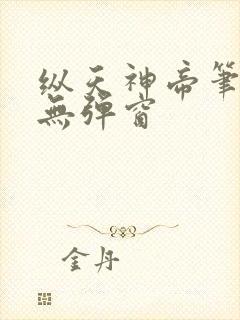 纵天神帝筆
無彈窗
金丹